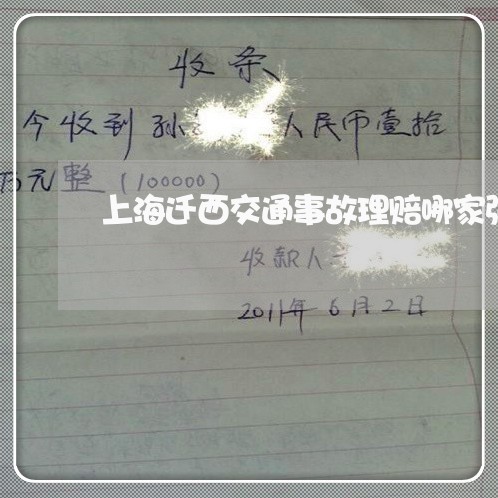 收条
今收到孙 人民币壹拾
万元整(100000)
上海迁西交通事故理赔哪家强
收款人
2011年6月2日